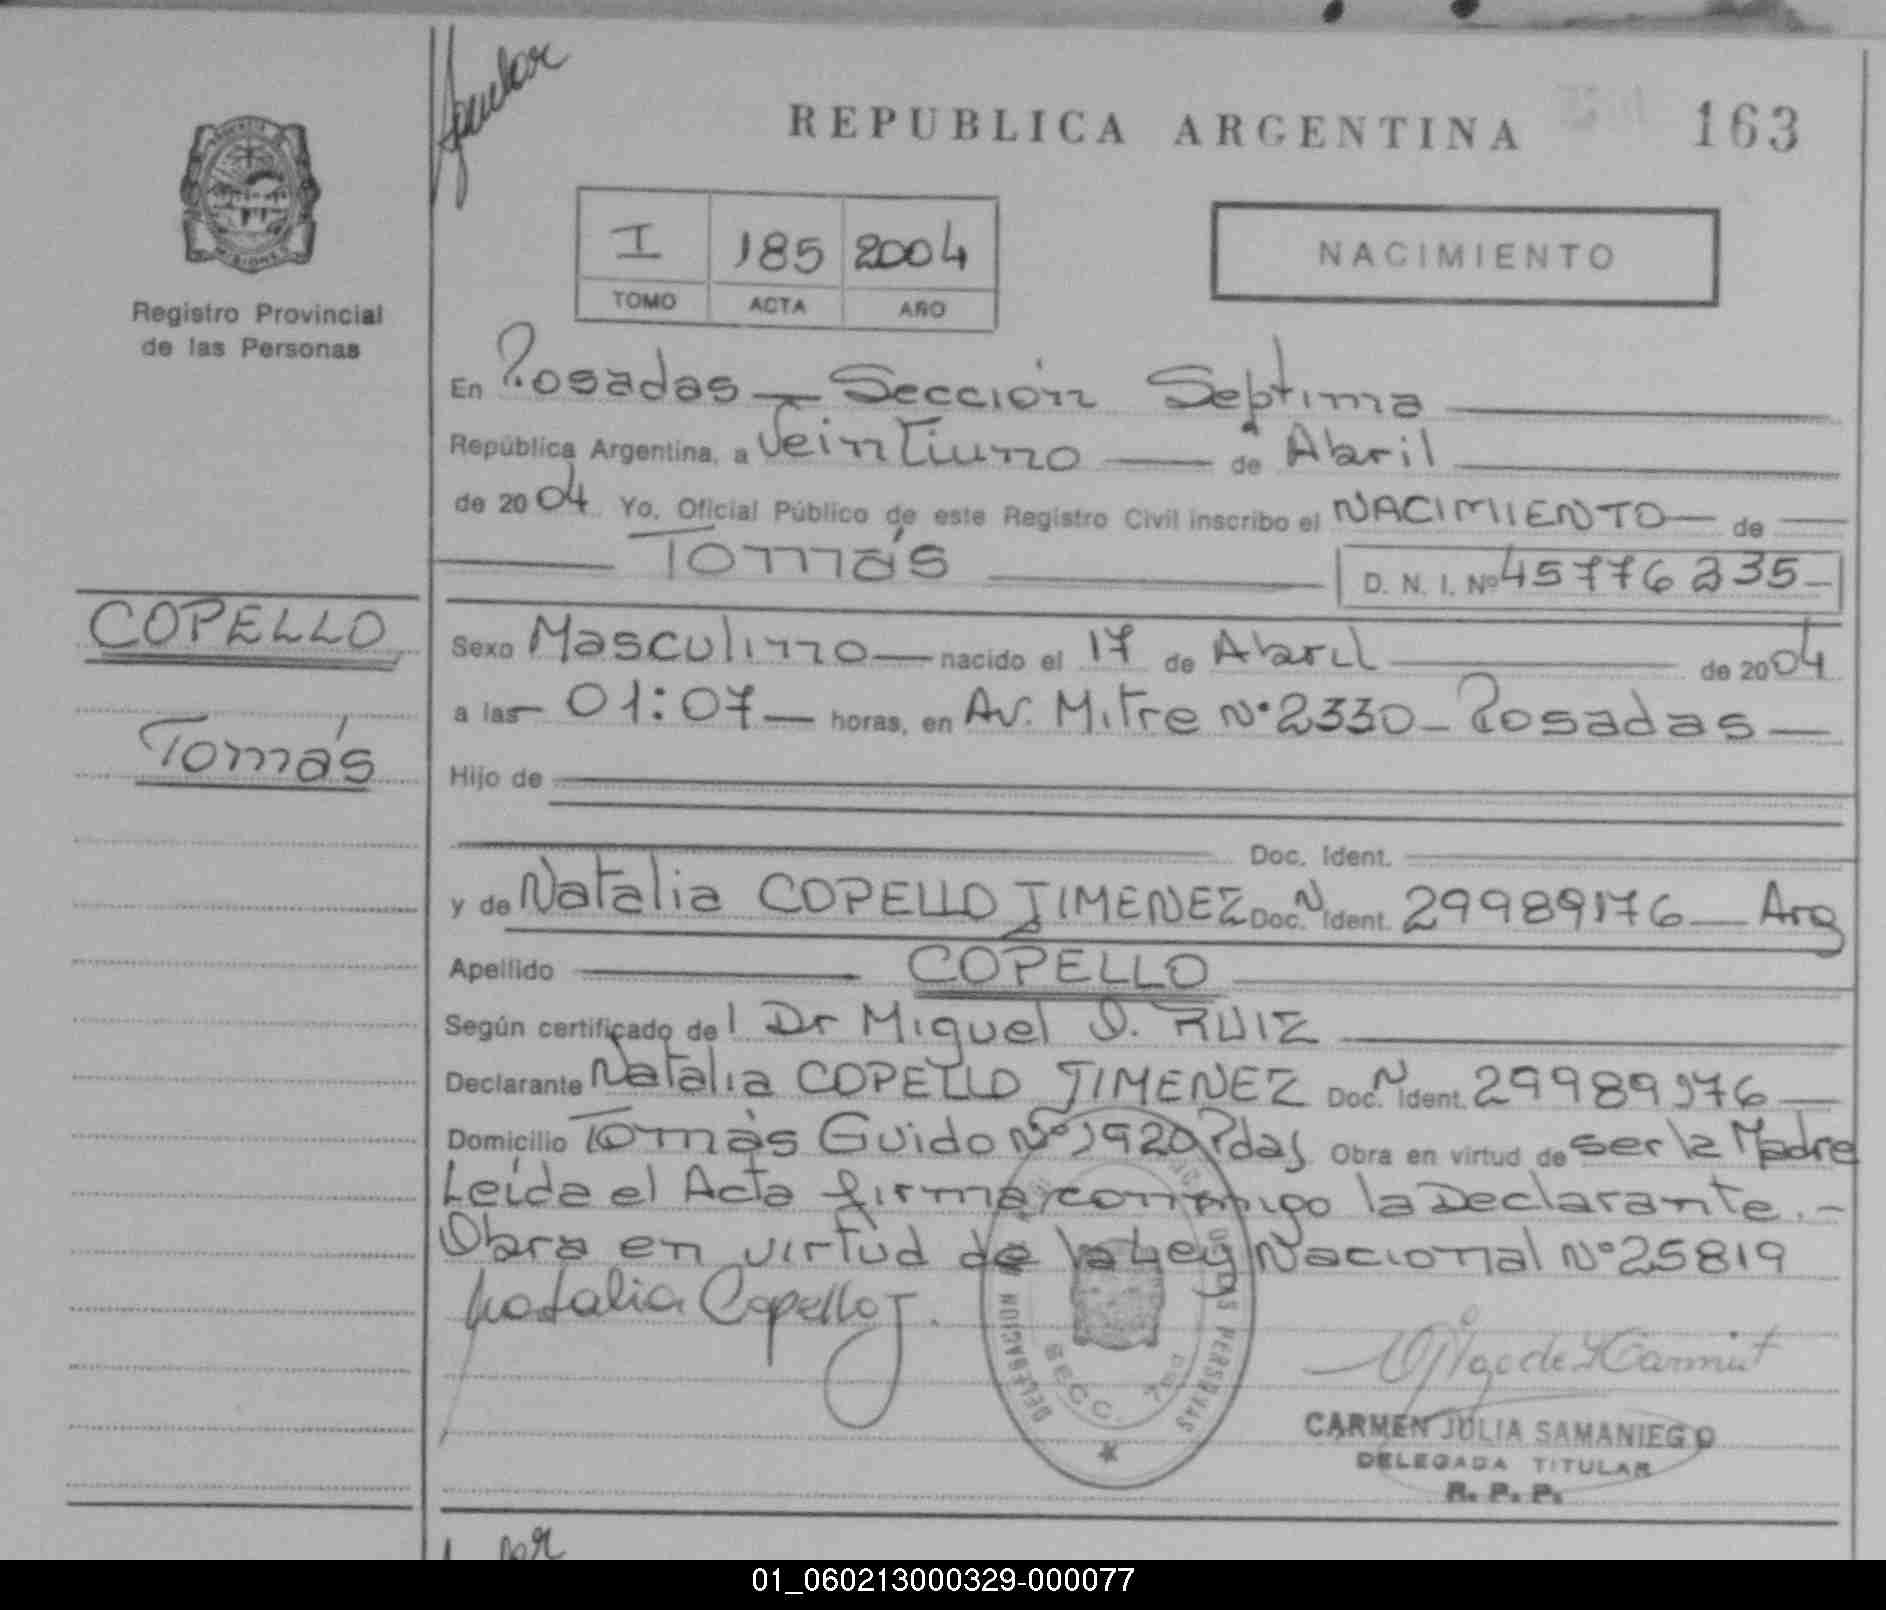 REPUBLICA ARGENTINA
163
I 185 2004
TOMO ACTA AÑO
NACIMIENTO
Registro Provincial
de las Personas
En Posadas - Sección Septima
República Argentina, a Veintiuno de Abril
de 2004 Yo, Oficial Público de este Registro Civil inscribo el NACIMIENTO de
Tomás D. N. I. Nº 45776235
COPELLO
Tomás
Sexo Masculino nacido el 17 de Abril de 2004
a las 01:07 horas, en Av. Mitre Nº 2330 - Posadas
Hijo de
Doc. Ident.
y de Natalia COPELLO JIMENEZ Doc. N Ident. 29989176 Arg
Apellido COPELLO
Según certificado del Dr Miguel O. RUIZ
Declarante Natalia COPELLO JIMENEZ Doc. N Ident. 29989176
Domicilio Tomás Guido Nº 1920 Pdas Obra en virtud de ser la Madre
Leída el Acta firma conmigo la Declarante.-
Obra en virtud de la Ley Nacional Nº 25819
Natalia Copello J.
DELEGACION
DE LAS PERSONAS
SECC. 7ma
CARMEN JULIA SAMANIEGO
DELEGADA TITULAR
R. P. P.
01_060213000329-000077